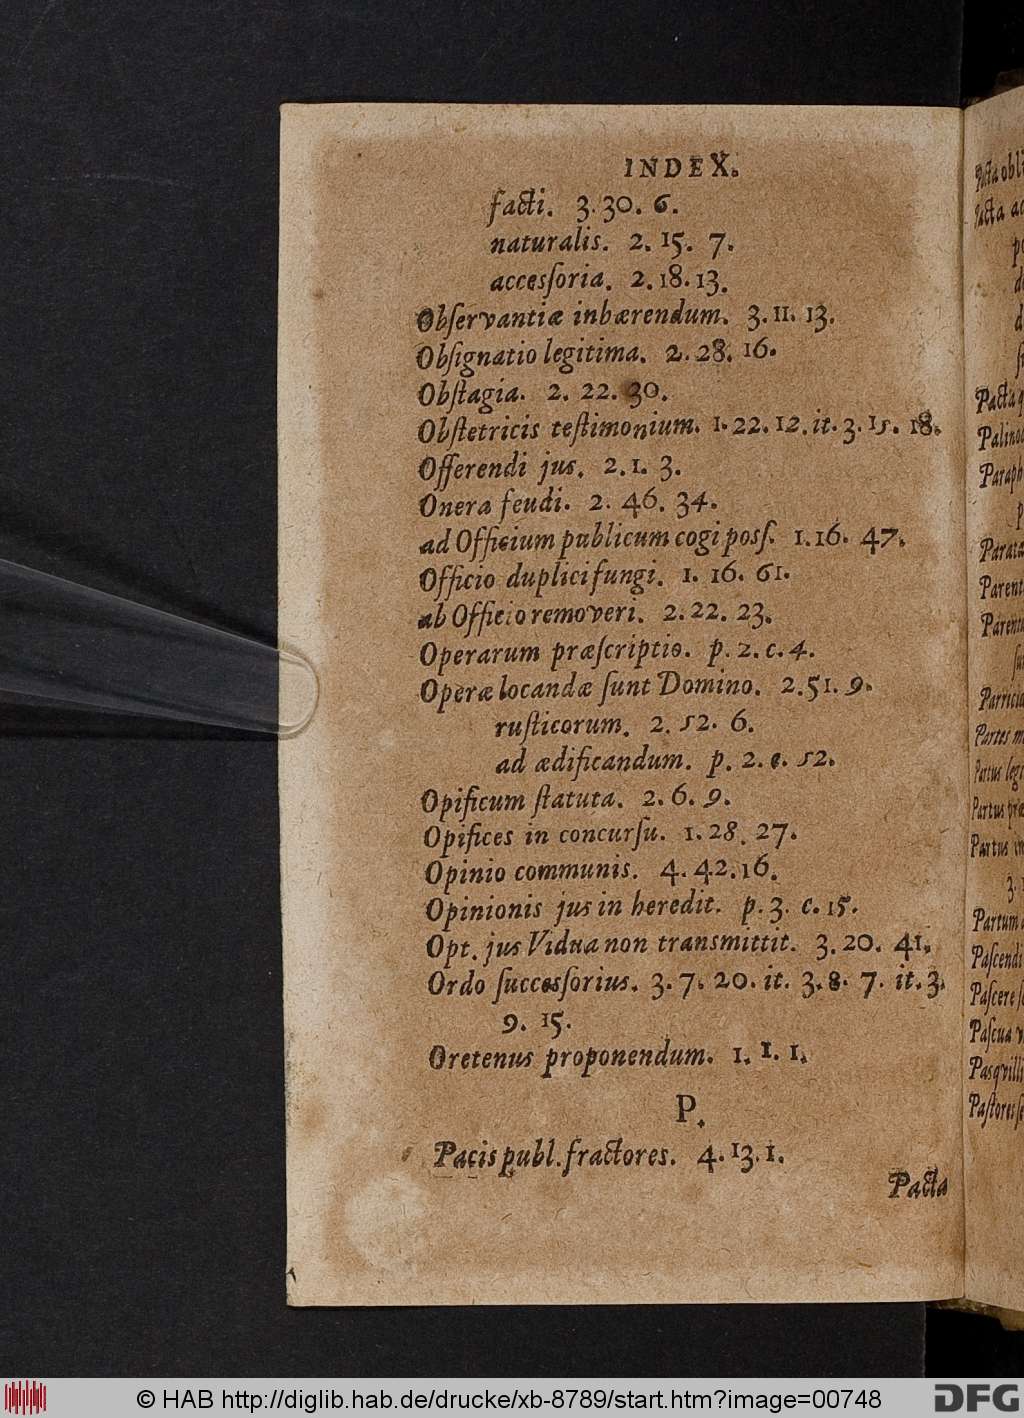 INDEX.
facti. 3. 30. 6.
naturalis. 2. 15. 7.
accesſoria. 2. 18. 13.
Obſervantiæ inhærendum. 3. 11. 13.
Obſignatio legitima. 2. 28. 16.
Obſtagia. 2. 22. 30.
Obſtetricis teſtimonium. 1. 22. 12. it. 3. 15. 18.
Offerendi jus. 2. 1. 3.
Onera feudi. 2. 46. 34.
ad Officium publicum cogi posſ. 1. 16. 47.
Officio duplici fungi. 1. 16. 61.
ab Officio removeri. 2. 22. 23.
Operarum præſcriptio. p. 2. c. 4.
Operæ locandæ ſunt Domino. 2. 51. 9.
ruſticorum. 2. 52. 6.
ad ædificandum. p. 2. c. 52.
Opificum ſtatuta. 2. 6. 9.
Opifices in concurſu. 1. 28. 27.
Opinio communis. 4. 42. 16.
Opinionis jus in heredit. p. 3. c. 15.
Opt. jus Vidua non transmittit. 3. 20. 41.
Ordo ſuccesſorius. 3. 7. 20. it. 3. 8. 7. it. 3.
9. 15.
Oretenus proponendum. 1. 1. 1.
P.
Pacis publ. fractores. 4. 13. 1.
Pacta
Pacta
Pacta
Parricid
Partes
Partus
Partus
Partus
Partum
Paſcendi
Paſcere
Paſcua
Paſqvilli
Paſtores
© HAB http://diglib.hab.de/drucke/xb-8789/start.htm?image=00748
DFG